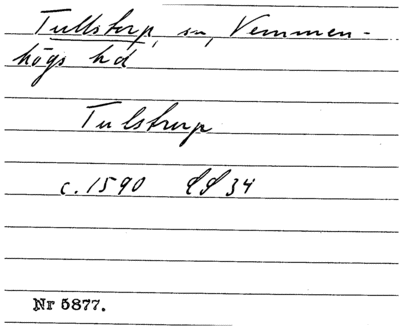 Tullstorp, sn, Vemmen-
högs hd
Tulstrup
c. 1590 LL 34
Nr 5877.